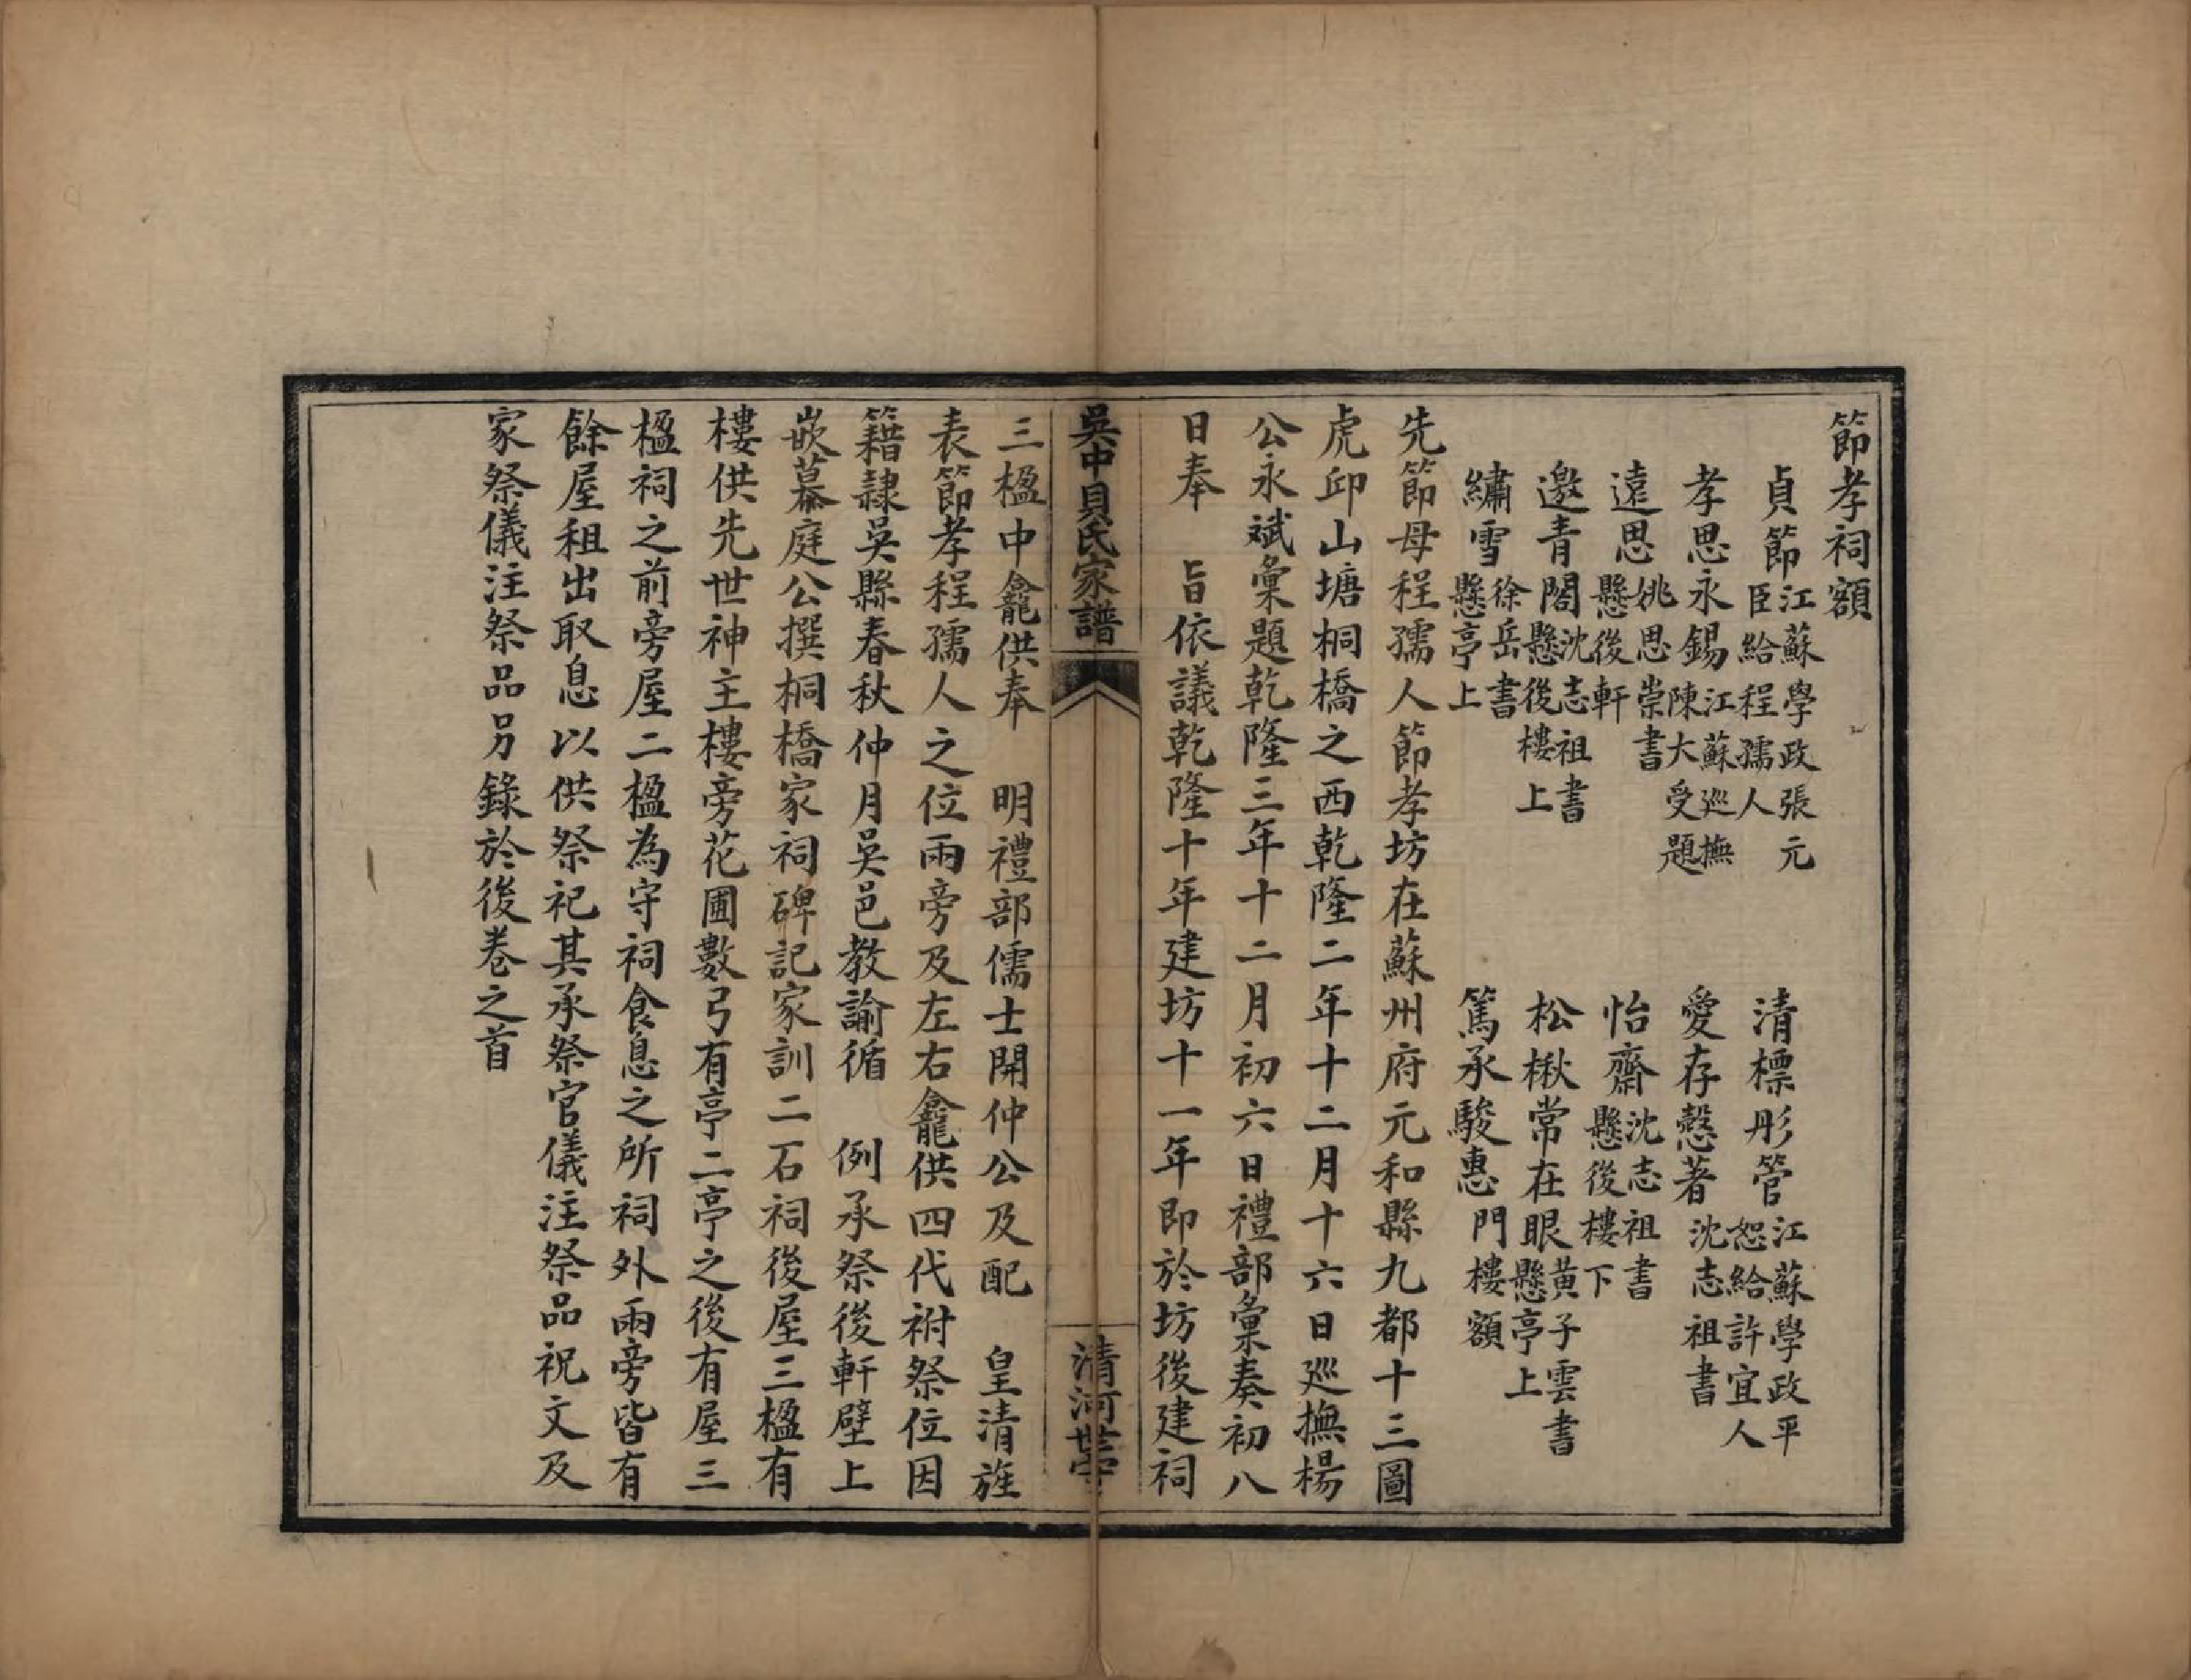 節孝祠額
貞節 江蘇學政張元臣給程孺人 清標彤管 江蘇學政平恕給許宜人
孝思永錫 江蘇巡撫陳大受題 愛存慤著 沈志祖書
遠思 姚思崇書懸後軒 怡齋 沈志祖書懸後樓下
邀青閣 沈志祖書懸後樓上 松楸常在眼 黃子雲書懸亭上
繡雪 徐岳書懸亭上 篤承駿惠 門樓額
先節母程孺人節孝坊在蘇州府元和縣九都十三圖
虎邱山塘桐橋之西乾隆二年十二月十六日巡撫楊
公永斌彙題乾隆三年十二月初六日禮部彙奏初八
日奉 旨依議乾隆十年建坊十一年即於坊後建祠
吳中貝氏家譜 清河世宁
三楹中龕供奉 明禮部儒士開仲公及配 皇清旌
表節孝程孺人之位兩旁及左右龕供四代祔祭位因
籍隸吳縣春秋仲月吳邑教諭循 例承祭後軒壁上
嵌慕庭公撰桐橋家祠碑記家訓二石祠後屋三楹有
樓供先世神主樓旁花圃數弓有亭二亭之後有屋三
楹祠之前旁屋二楹為守祠食息之所祠外兩旁皆有
餘屋租出取息以供祭祀其承祭官儀注祭品祝文及
家祭儀注祭品另錄於後卷之首